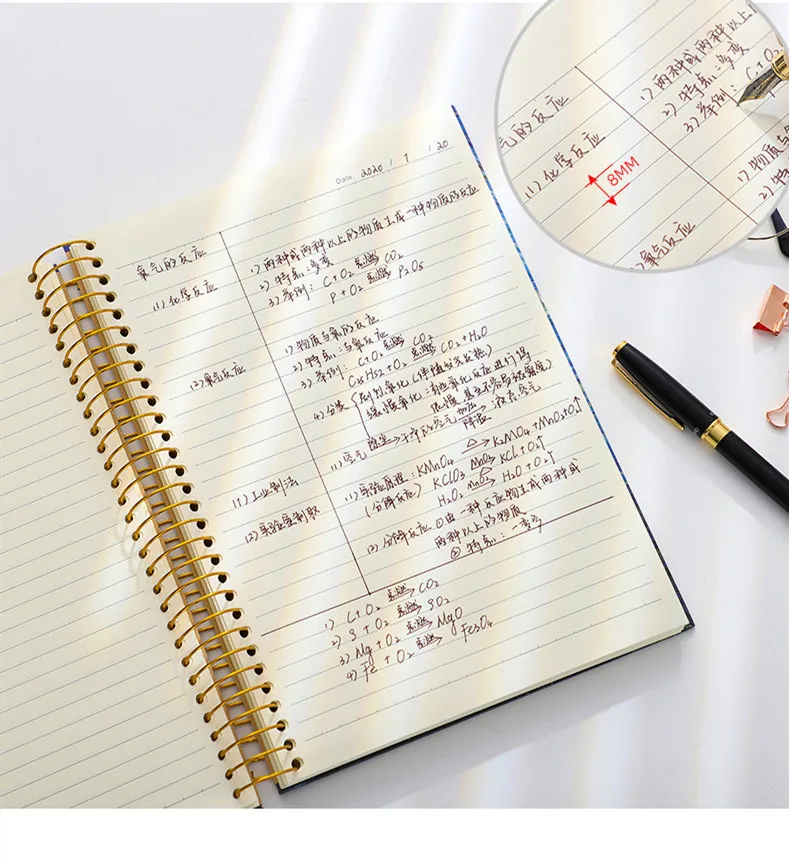 Date. 2020 / 1 / 20
氧气的反应
(1) 化学反应
1) 两种或两种以上的物质生成一种物质的反应
2) 特点: 多变一
3) 举例: C + O₂ 点燃→ CO₂
P + O₂ 点燃→ P₂O₅
(2) 氧化反应
1) 物质与氧的反应
2) 特点: 与氧反应
3) 举例: C + O₂ 点燃→ CO₂
+ O₂ 点燃→ CO₂ + H₂O
4) 分类
剧烈氧化
缓慢氧化: 有些氧化反应进行得
很慢, 甚至不容易被察觉)
(1) 工业制法
(1) 空气 除尘→ 干净的空气 加压 降温→ 液态空气
(2) 实验室制取
(1) 实验原理: KMnO₄ △→ K₂MnO₄ + MnO₂ + O₂↑
(分解反应) KClO₃ MnO₂ △→ KCl + O₂↑
H₂O₂ MnO₂→ H₂O + O₂↑
(2) 分解反应 ①由一种反应物生成两种或
两种以上的物质
② 特点: 一变多
1) C + O₂ 点燃→ CO₂
2) S + O₂ 点燃→ SO₂
3) Mg + O₂ 点燃→ MgO
4) Fe + O₂ 点燃→ Fe₃O₄
气的反应
(1) 化学反应
1) 两种或两种以上
2) 特点: 多变
3) 举例: C + O₂
8MM
1) 物质与
2) 特
氧气反应